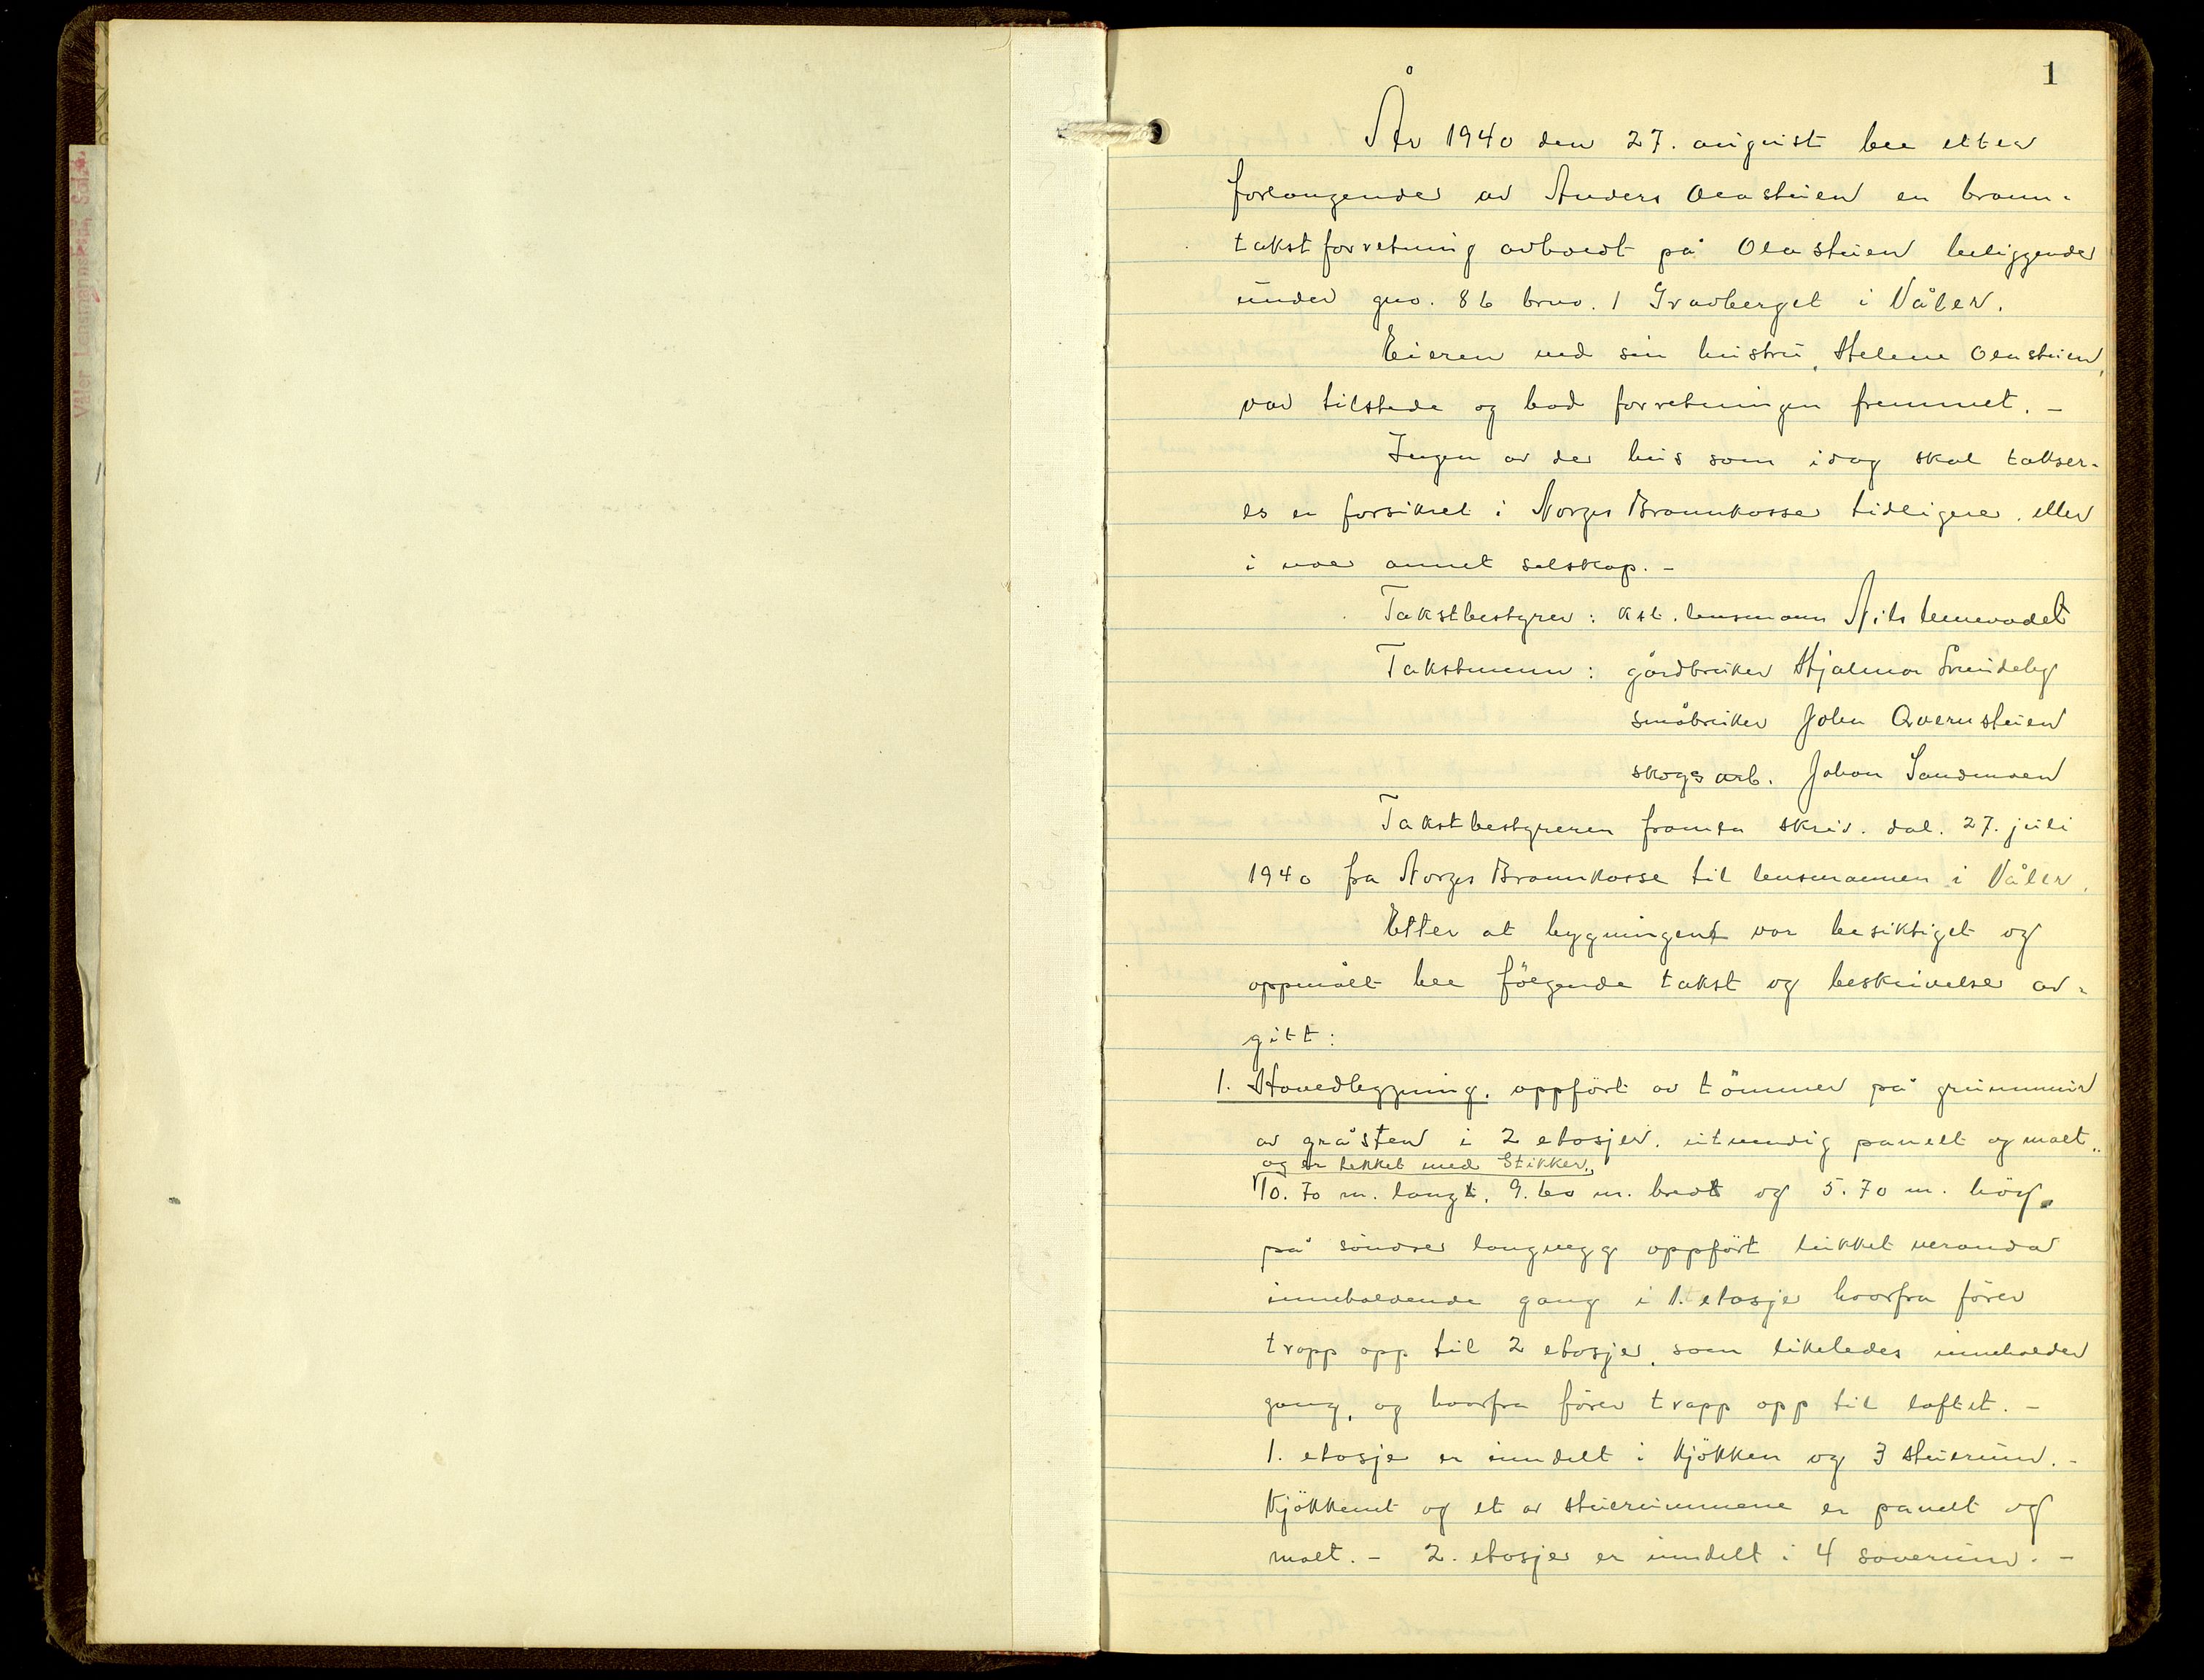 Våler Lensmannskap, Solør.
1
År 1940 den 27. august ble etter
forlangende av Anders Olastuen en brann-
takstforretning avholdt på Olastuen beliggende
under gno. 86 bruo. 1 Gravberget i Våler.
Eieren med sin hustru, Helene Olastuen,
var tilstede og bad forretningen fremmet. -
Ingen av de hus som idag skal takser-
es er forsikret i Norges Brannkasse tidligere, eller
i noe annet selskap. -
Takstbestyrer: Kst. lensmann Nils
Takstmenn: gårdbruker Hjalmar
småbruker John Qvernstuen
skogsarb. Johan Sandmoen
Takstbestyreren framla skriv. dat. 27. juli
1940 fra Norges Brannkasse til lensmannen i Våler.
Etter at bygningene var besiktiget og
oppmålt ble følgende takst og beskrivelse av-
gitt:
1. Hovedbygning, oppført av tömmer på grunnmur
av gråsten i 2 etasjer, utvendig panelt og malt,
og er tekket med Stikker,
10.70 m. langt, 9.60 m. bredt og 5.70 m. høy.
på søndre langvegg oppført lukket veranda
inneholdende gang i 1. etasje hvorfra fører
trapp opp til 2 etasje, som likeledes inneholder
gang, og hvorfra fører trapp opp til loftet. -
1. etasje er inndelt i kjøkken og 3 stuerum. -
Kjøkkenet og et av stuerummene er panelt og
malt. - 2. etasje er inndelt i 4 soverum. -